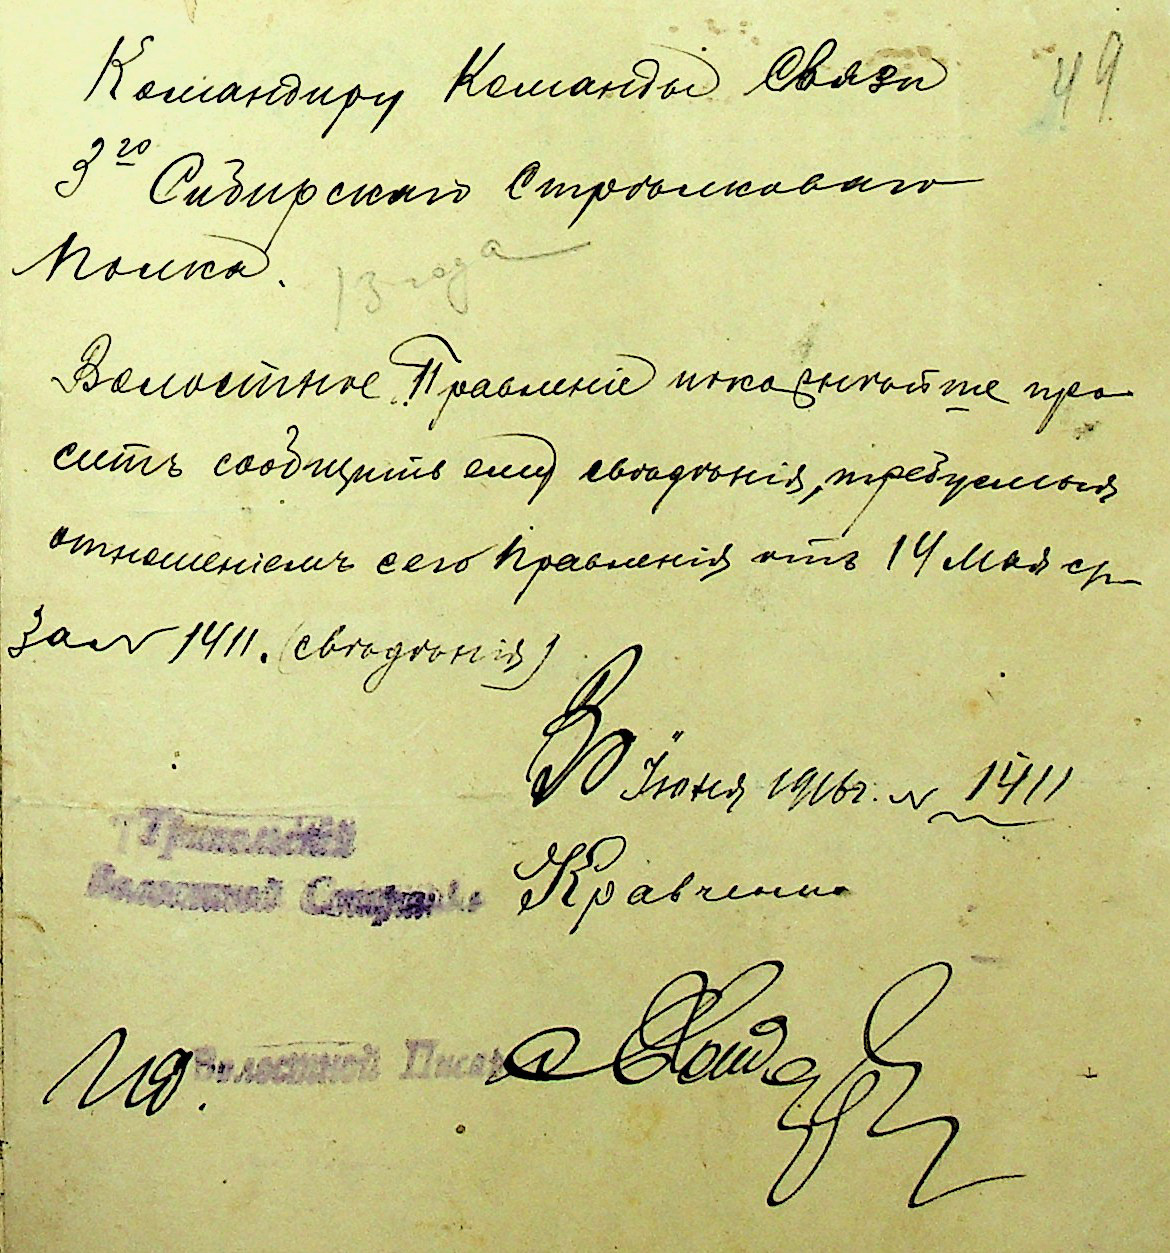 49
Командиру Команды Связи
3го Сибирскаго Стрѣлковаго
Полка.
13 года
Волостное Правленіе покорнѣйше про
ситъ сообщить ему свѣдѣнія, требуемыя
отношеніемъ сего Правленія отъ 14 Мая ср
за № 1411. (свѣдѣнія)
Іюня 1916 г. № 1411
Трипольскій
Волостной Старшина
Кравченко
И д. Волостной Писарь